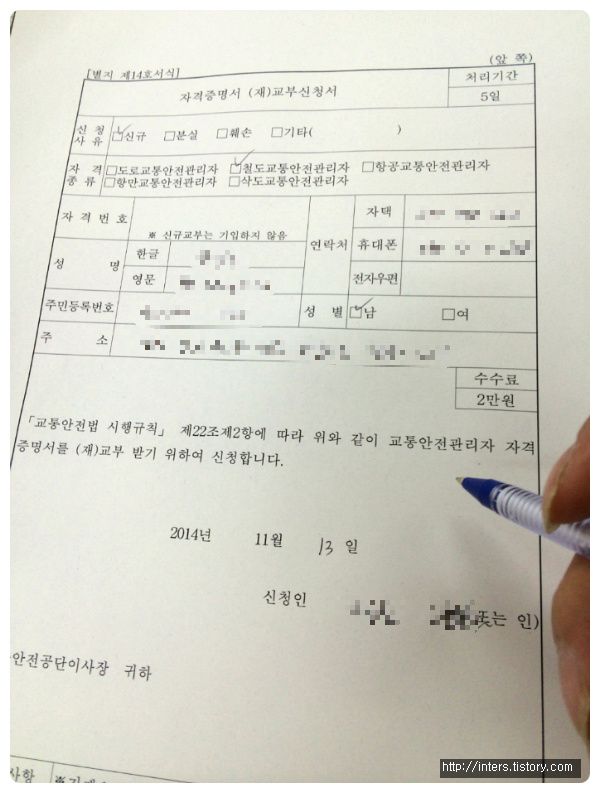 (앞 쪽)
[별지 제14호서식]
자격증명서 (재)교부신청서
처리기간
5일
신 청
사 유
☑신규 □분실 □훼손 □기타( )
자 격
종 류
□도로교통안전관리자 ☑철도교통안전관리자 □항공교통안전관리자
□항만교통안전관리자 □삭도교통안전관리자
자 격 번 호
※ 신규교부는 기입하지 않음
연락처
자택
휴대폰
전자우편
성 명
한글
영문
주민등록번호
성 별
☑남 □여
주 소
수수료
2만원
「교통안전법 시행규칙」 제22조제2항에 따라 위와 같이 교통안전관리자 자격
증명서를 (재)교부 받기 위하여 신청합니다.
2014년 11월 13 일
신청인
는 인)
안전공단이사장 귀하
사항
http://inters.tistory.com